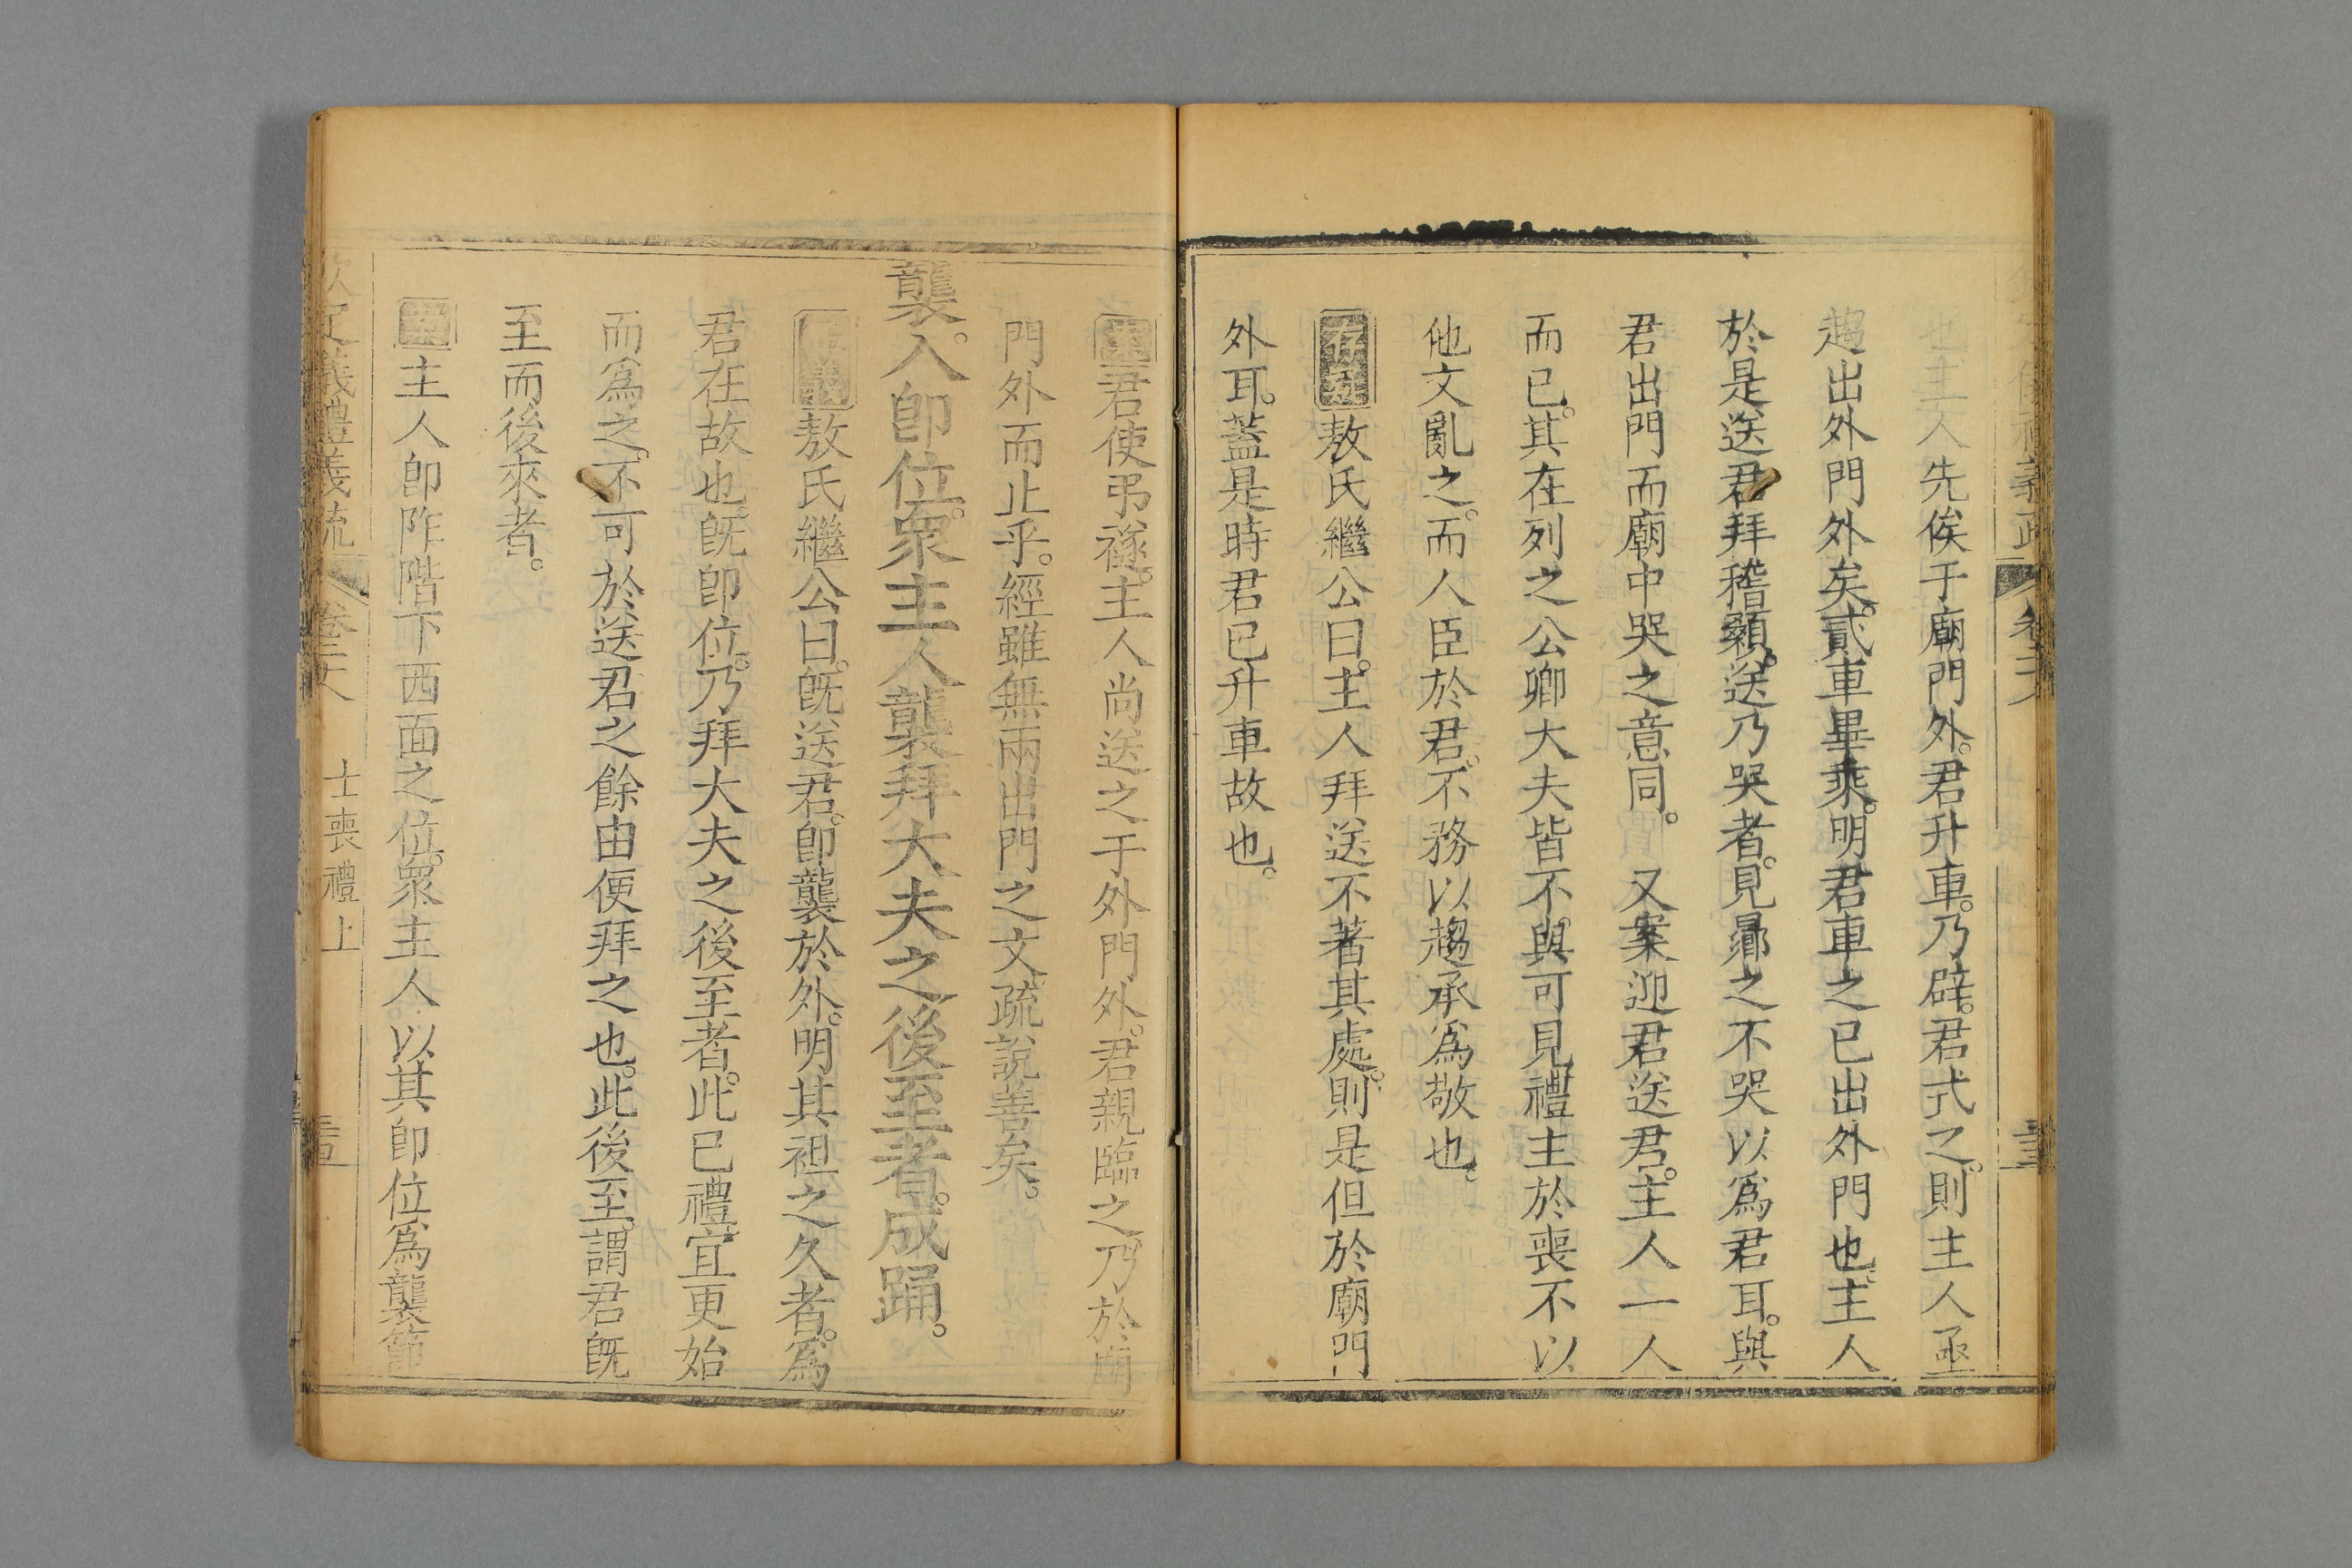 也主人先俟于廟門外。君升車。乃辟。君式之。則主人亟
趨出外門外矣。貳車畢乘。明君車之已出外門也。主人
於是送君拜稽顙。送乃哭者。見曏之不哭以爲君耳。與
君出門而廟中哭之意同。　又案迎君送君。主人一人
而已。其在列之公卿大夫皆不與。可見禮主於喪。不以
他文亂之。而人臣於君。不務以趨承爲敬也。
存疑敖氏繼公曰。主人拜送不著其處。則是但於廟門
外耳。蓋是時君已升車故也。
君使弔襚。主人尚送之于外門外。君親臨之。乃於廟
門外而止乎。經雖無兩出門之文。疏説善矣。
襲。入卽位。衆主人襲。拜大夫之後至者。成踊。
敖氏繼公曰。旣送君。卽襲於外。明其袒之久者。爲
君在故也。旣卽位。乃拜大夫之後至者。此已禮。宜更始
而爲之。不可於送君之餘由便拜之也。此後至。謂君旣
至而後來者。
主人卽阼階下西面之位。衆主人。以其卽位爲襲節
欽定義禮義疏　卷二十八　士喪禮上